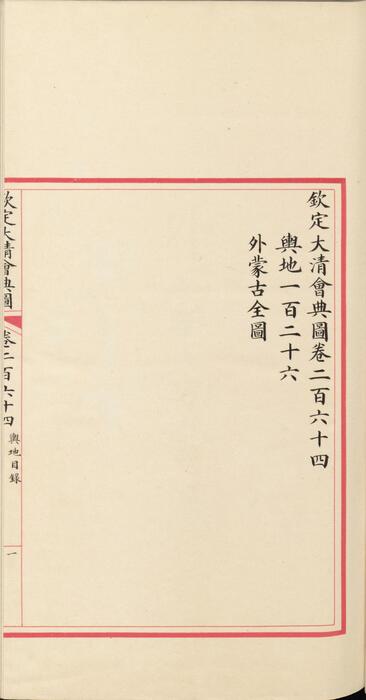 欽定大清會典圖卷二百六十四
輿地一百二十六
外蒙古全圖
欽定大清會典圖
卷二百六十四
輿地目錄
一